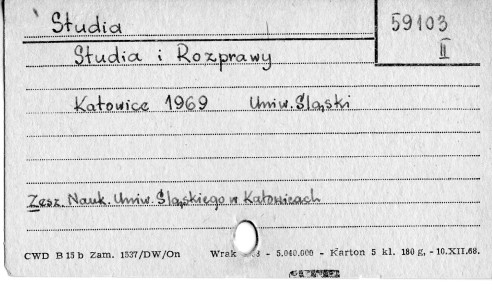 Studia
59103
II
Studia i Rozprawy
Katowice 1969 Uniw. Śląski
Zesz. Nauk. Uniw. Śląskiego w Katowicach
CWD B 15 b Zam. 1537/DW/On Wrak - 5.040.000 - Karton 5 kl. 180 g, - 10.XII.68.